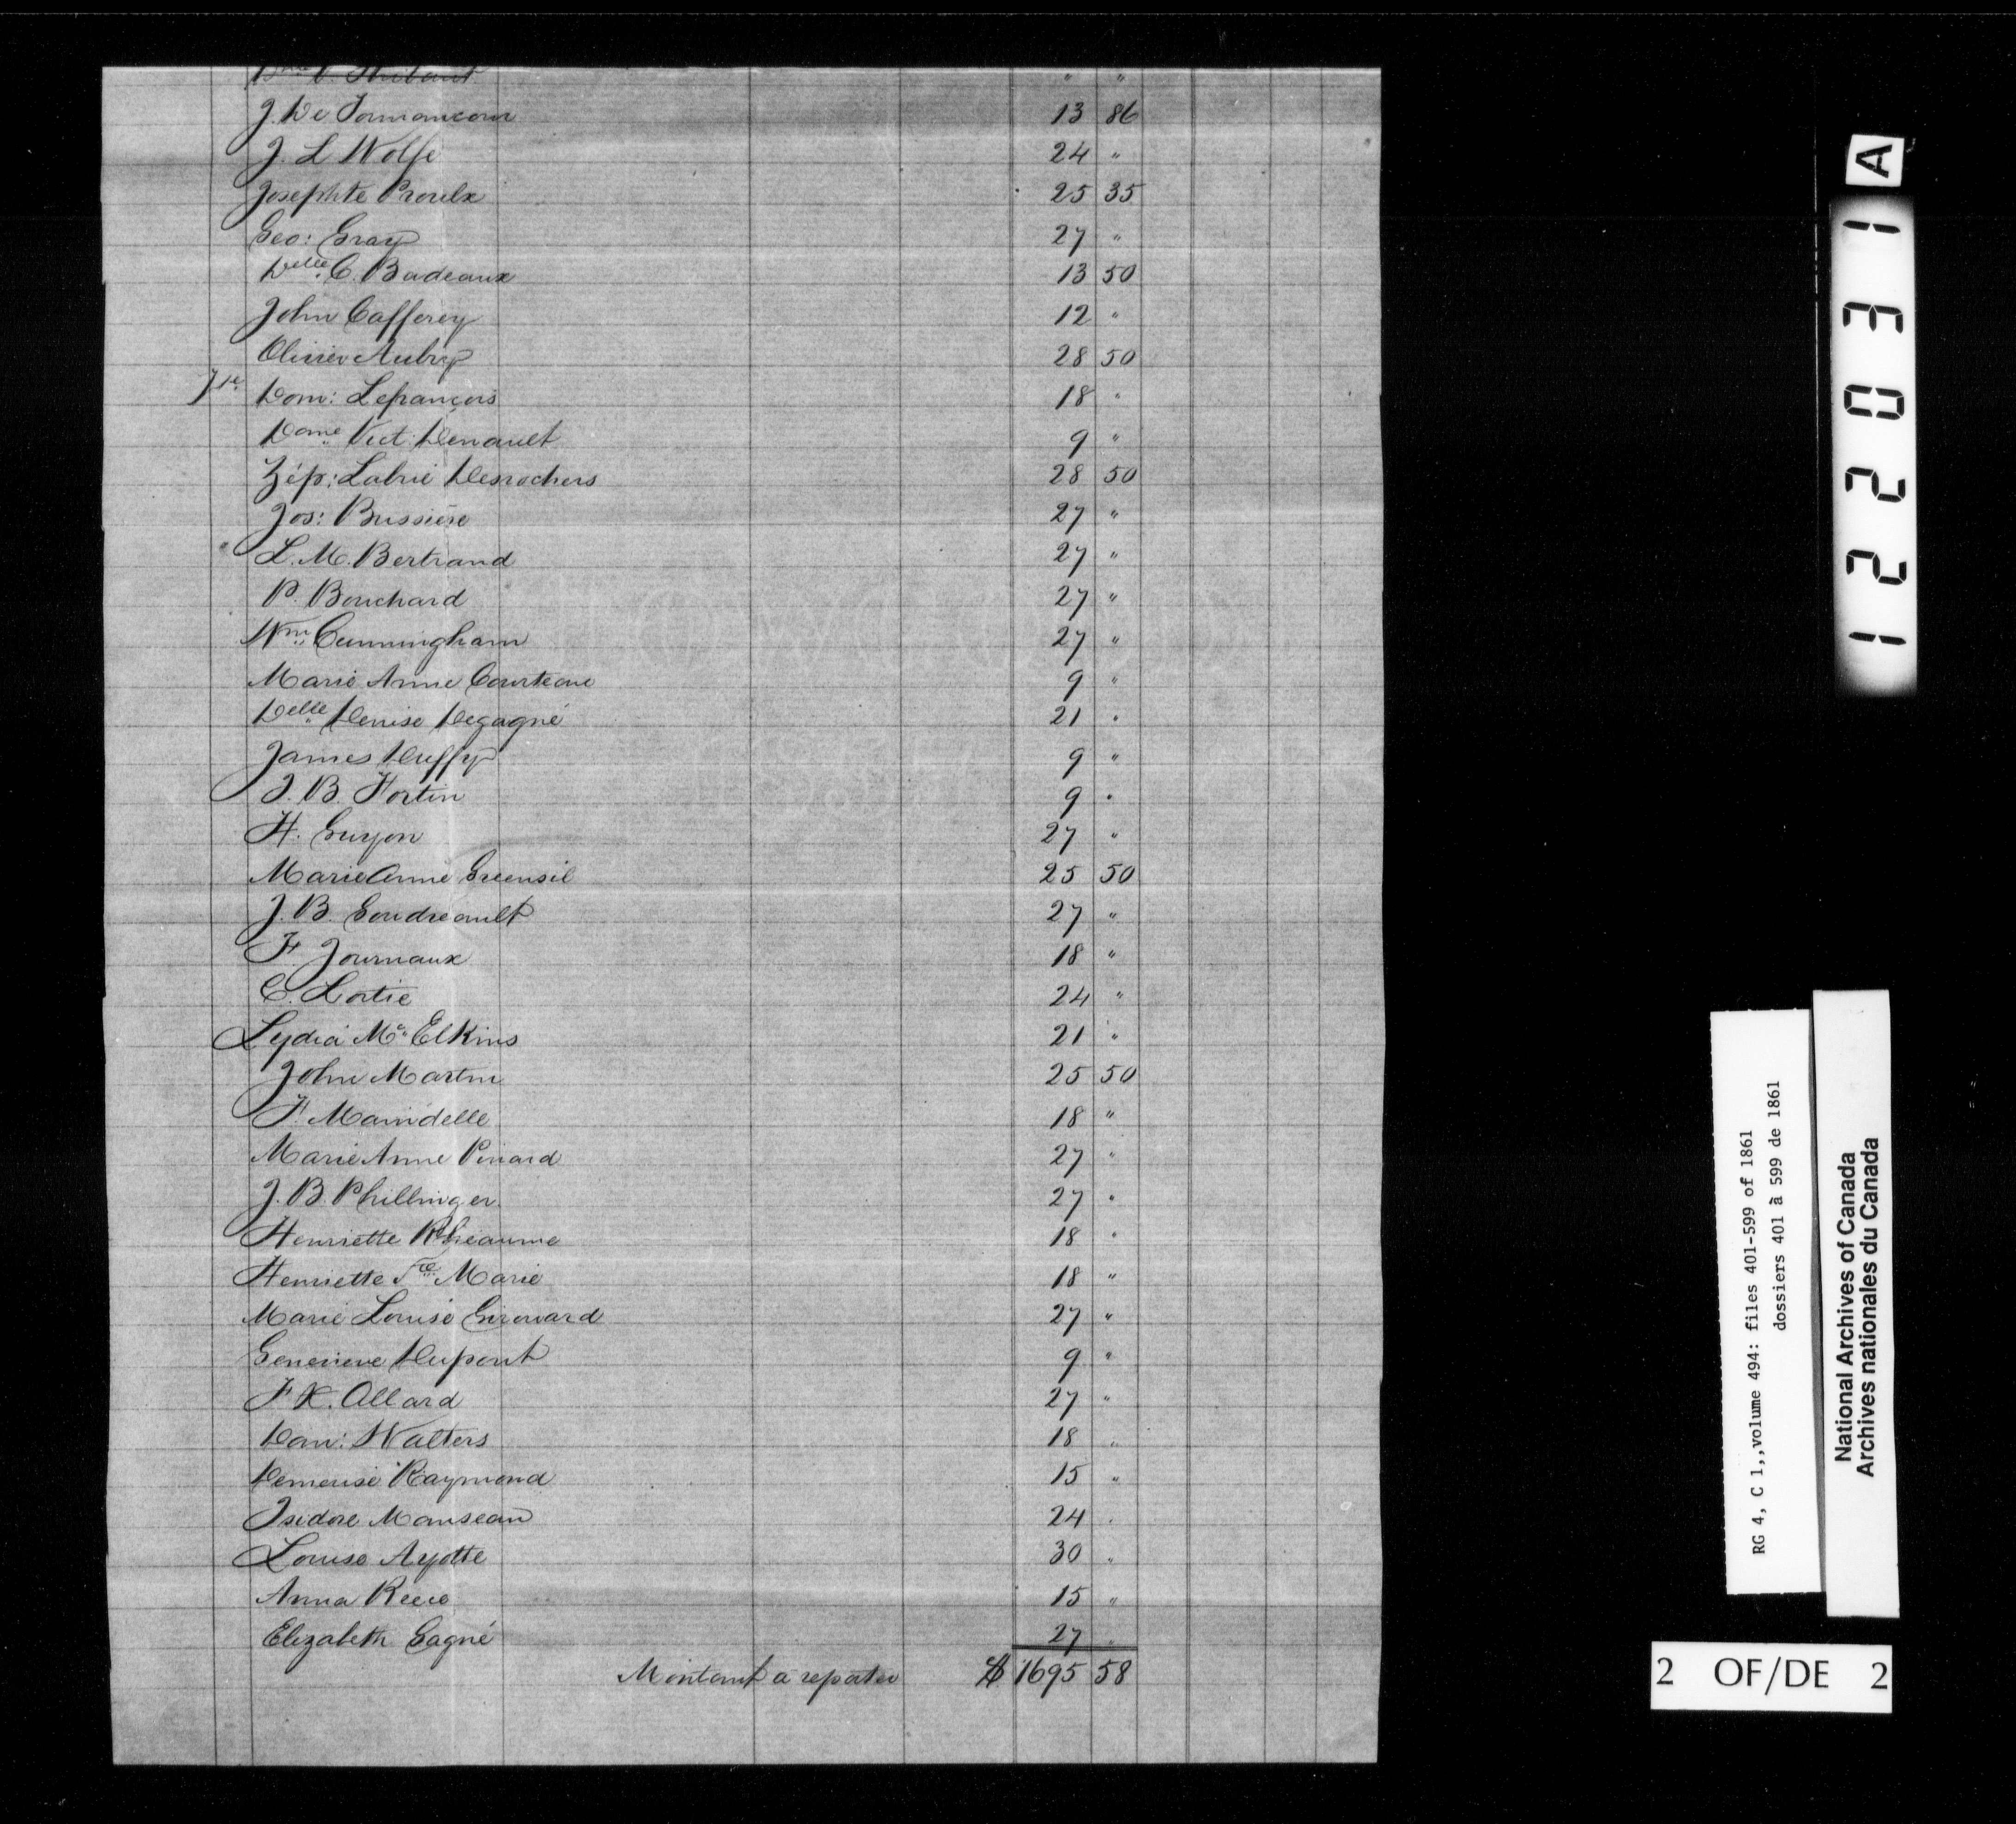 Dme V. Thibault " "
J. De Tonnancour 13 86
J. L Wolfe 24 "
Josephte Proulx 25 35
Geo: Gray 27 "
Delle C. Badeaux 13 50
John Cafferey 12 "
Olivier Aubry 28 50
Dom: Lefrançois 18 "
Dame Vict. Denault 9 "
Zép: Labrie Desrochers 28 50
Jos: Bussière 27 "
L. M. Bertrand 27 "
P. Bouchard 27 "
Wm Cunningham 27 "
Marie Anne Courteau 9 "
Delle Denise Degagné 21 "
James Duffy 9 "
J. B. Fortin 9 "
H. Guyon 27 "
Marie Anne Greensil 25 50
J. B. Goudreault 27 "
F. Journaux 18 "
C. Lortie 24 "
Lydia Mc Elkins 21 "
John Martin 25 50
F. Manidelle 18 "
Marie Anne Pinard 27 "
J. B. Phillinger 27 "
Henriette Rhéaume 18 "
Henriette Ste Marie 18 "
Marie Louise Girouard 27 "
Genevieve Dupont 9 "
F X. Allard 27 "
Dan: Walters 18 "
Demerise Raymond 15 "
Isidore Manseau 24 "
Louise Ayotte 30 "
Anna Reece 15 "
Elizabeth Gagné 27 "
Montant à reporter $ 1695 58
122031 A
RG 4, C 1,,volume 494: files 401-599 of 1861
dossiers 401 à 599 de 1861
National Archives of Canada
Archives nationales du Canada
2 OF/DE 2